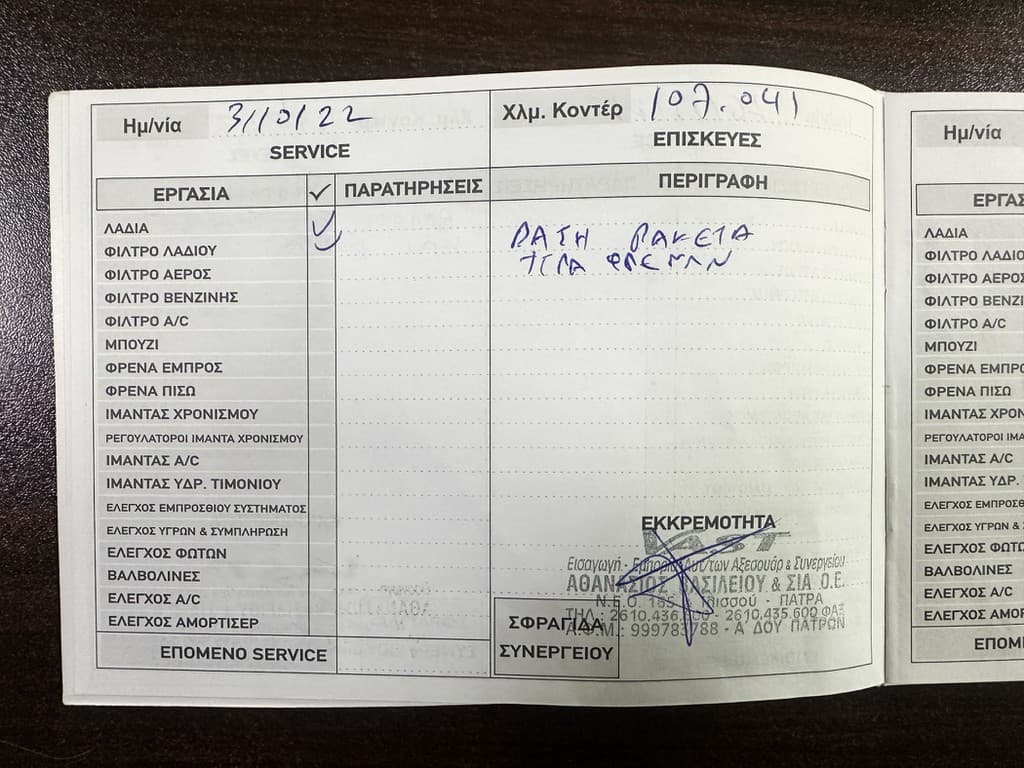 Ημ/νία 3/10/22
SERVICE
Χλμ. Κοντέρ 107.041
ΕΠΙΣΚΕΥΕΣ
ΕΡΓΑΣΙΑ ✓ ΠΑΡΑΤΗΡΗΣΕΙΣ
ΠΕΡΙΓΡΑΦΗ
ΛΑΔΙΑ ✓
ΦΙΛΤΡΟ ΛΑΔΙΟΥ ✓
ΦΙΛΤΡΟ ΑΕΡΟΣ
ΦΙΛΤΡΟ ΒΕΝΖΙΝΗΣ
ΦΙΛΤΡΟ A/C
ΜΠΟΥΖΙ
ΦΡΕΝΑ ΕΜΠΡΟΣ
ΦΡΕΝΑ ΠΙΣΩ
ΙΜΑΝΤΑΣ ΧΡΟΝΙΣΜΟΥ
ΡΕΓΟΥΛΑΤΟΡΟΙ ΙΜΑΝΤΑ ΧΡΟΝΙΣΜΟΥ
ΙΜΑΝΤΑΣ A/C
ΙΜΑΝΤΑΣ ΥΔΡ. ΤΙΜΟΝΙΟΥ
ΕΛΕΓΧΟΣ ΕΜΠΡΟΣΘΙΟΥ ΣΥΣΤΗΜΑΤΟΣ
ΕΛΕΓΧΟΣ ΥΓΡΩΝ & ΣΥΜΠΛΗΡΩΣΗ
ΕΛΕΓΧΟΣ ΦΩΤΩΝ
ΒΑΛΒΟΛΙΝΕΣ
ΕΛΕΓΧΟΣ A/C
ΕΛΕΓΧΟΣ ΑΜΟΡΤΙΣΕΡ
ΕΠΟΜΕΝΟ SERVICE
ΒΑΣΗ ΠΑΚΕΤΑ
ΥΓΡΑ ΦΡΕΝΩΝ
ΕΚΚΡΕΜΟΤΗΤΑ
Εισαγωγή - Εμπορία Αυτ/των Αξεσουάρ & Συνεργείου
ΑΘΑΝΑΣΙΟΣ ΒΑΣΙΛΕΙΟΥ & ΣΙΑ Ο.Ε.
Ν.Ε.Ο. ΠΑΤΡΑ
ΤΗΛ.: 2610.435.600 ΦΑΞ
Α.Φ.Μ.: 999783788 - Α΄ ΔΟΥ ΠΑΤΡΩΝ
ΣΦΡΑΓΙΔΑ
ΣΥΝΕΡΓΕΙΟΥ
Ημ/νία
ΕΡΓΑΣ
ΛΑΔΙΑ
ΦΙΛΤΡΟ ΛΑΔΙΟ
ΦΙΛΤΡΟ ΑΕΡΟΣ
ΦΙΛΤΡΟ ΒΕΝΖΙ
ΦΙΛΤΡΟ A/C
ΜΠΟΥΖΙ
ΦΡΕΝΑ ΕΜΠΡΟ
ΦΡΕΝΑ ΠΙΣΩ
ΙΜΑΝΤΑΣ ΧΡΟΝ
ΡΕΓΟΥΛΑΤΟΡΟΙ ΙΜΑ
ΙΜΑΝΤΑΣ A/C
ΙΜΑΝΤΑΣ ΥΔΡ.
ΕΛΕΓΧΟΣ ΕΜΠΡΟΣΘ
ΕΛΕΓΧΟΣ ΥΓΡΩΝ &
ΕΛΕΓΧΟΣ ΦΩΤΩ
ΒΑΛΒΟΛΙΝΕΣ
ΕΛΕΓΧΟΣ A/C
ΕΛΕΓΧΟΣ ΑΜΟΡ
ΕΠΟΜ